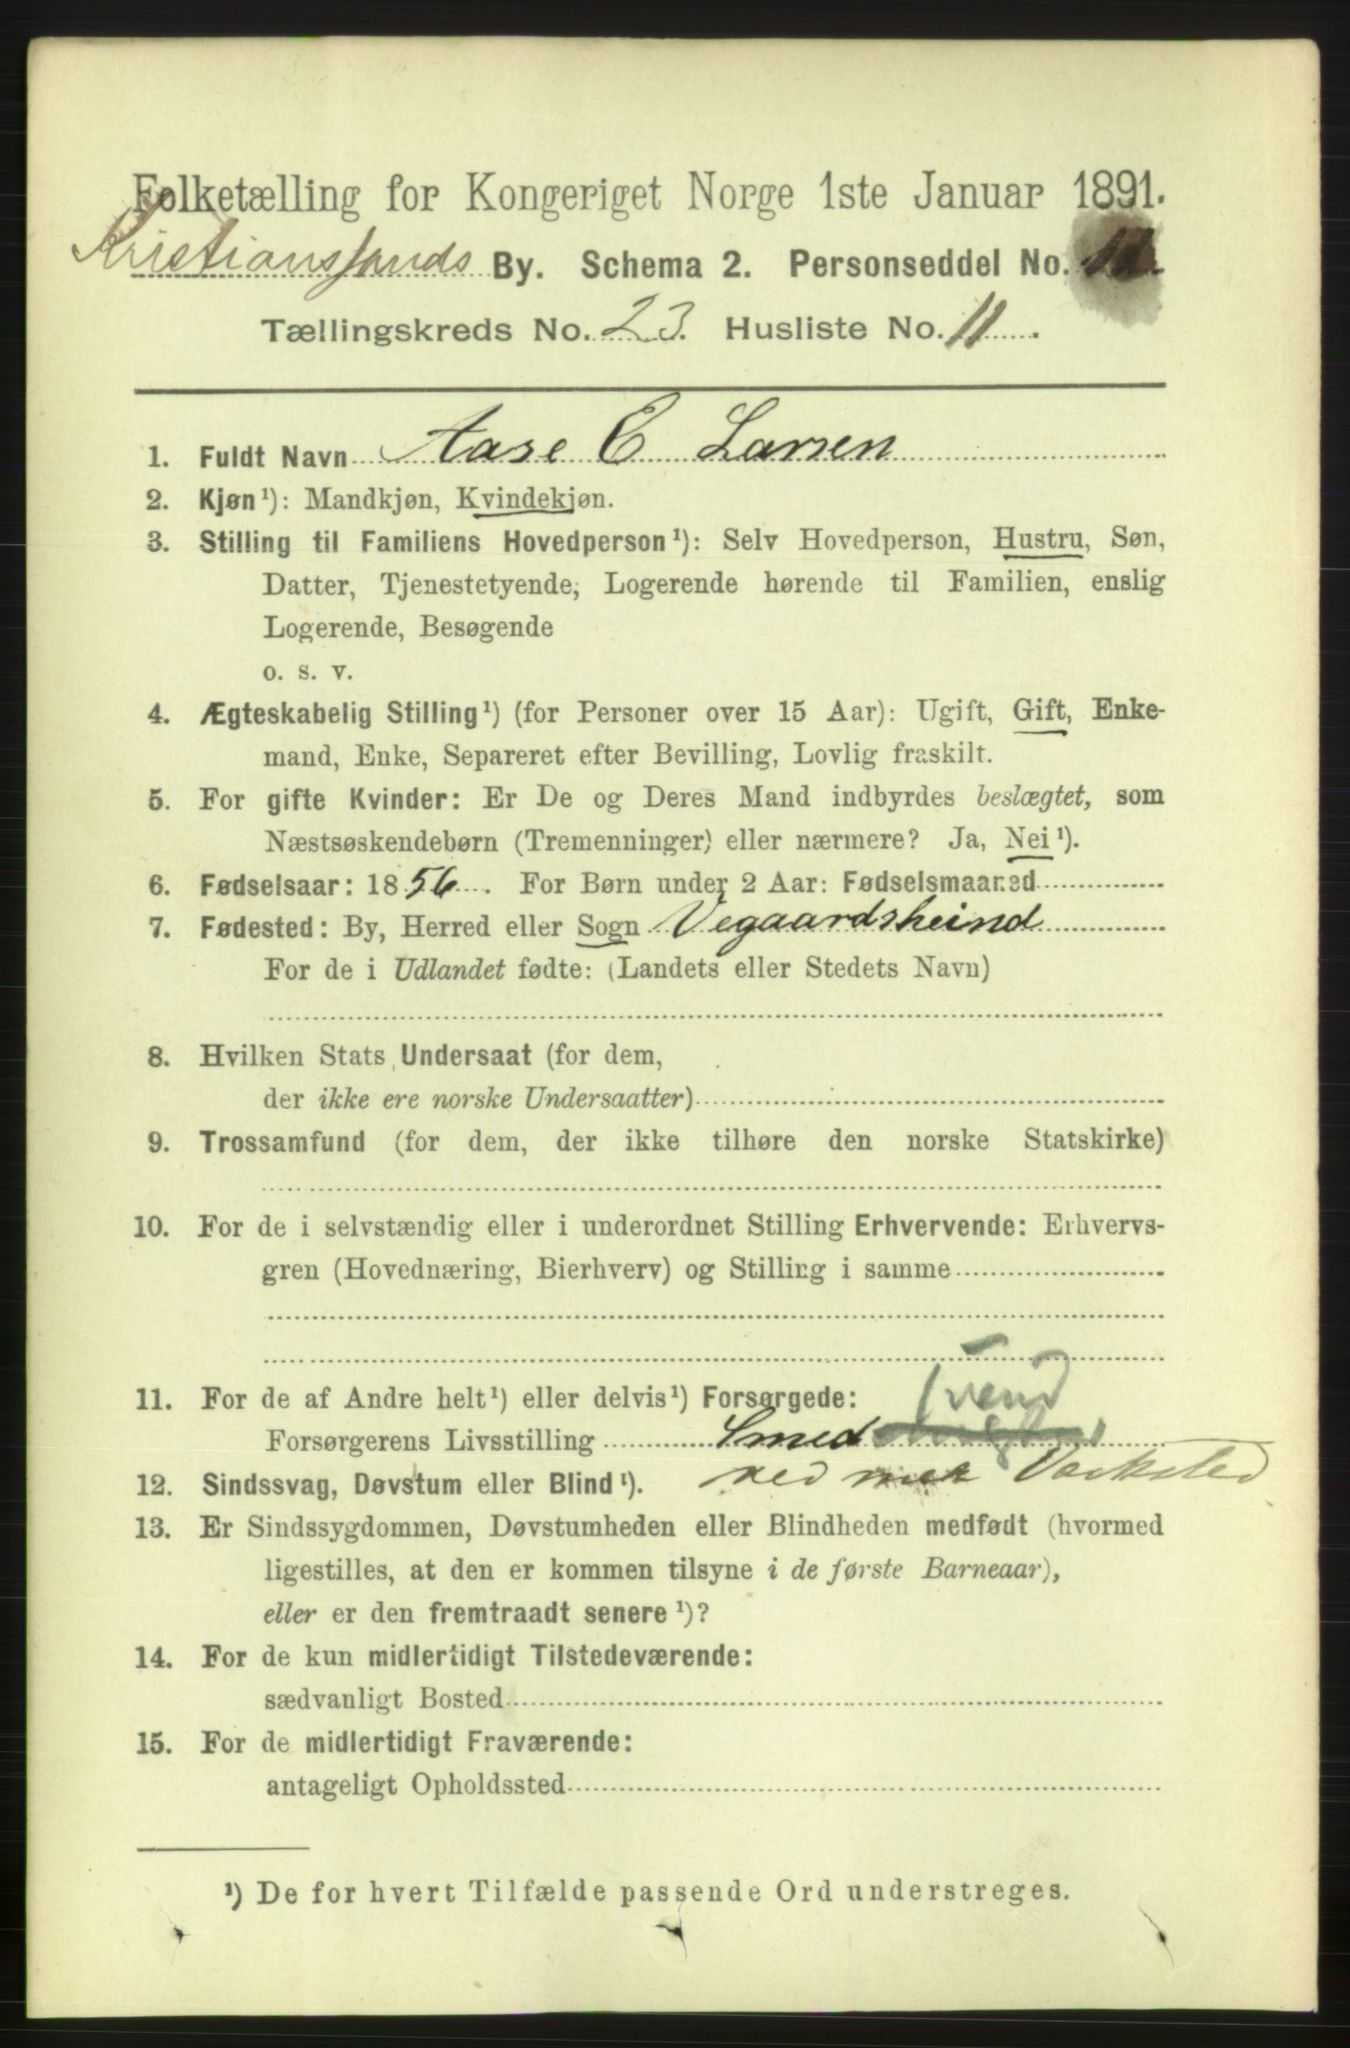 Folketælling for Kongeriget Norge 1ste Januar 1891.
Kristianssands By. Schema 2. Personseddel No.
Tællingskreds No. 23. Husliste No. 11.
1. Fuldt Navn Aase E Larsen
2. Kjøn¹): Mandkjøn, Kvindekjøn.
3. Stilling til Familiens Hovedperson¹): Selv Hovedperson, Hustru, Søn,
Datter, Tjenestetyende, Logerende hørende til Familien, enslig
Logerende, Besøgende
o. s. v.
4. Ægteskabelig Stilling¹) (for Personer over 15 Aar): Ugift, Gift, Enke-
mand, Enke, Separeret efter Bevilling, Lovlig fraskilt.
5. For gifte Kvinder: Er De og Deres Mand indbyrdes beslægtet, som
Næstsøskendebørn (Tremenninger) eller nærmere? Ja, Nei¹).
6. Fødselsaar: 1856. For Børn under 2 Aar: Fødselsmaaned
7. Fødested: By, Herred eller Sogn Vegaardsheind
For de i Udlandet fødte: (Landets eller Stedets Navn)
8. Hvilken Stats Undersaat (for dem,
der ikke ere norske Undersaatter)
9. Trossamfund (for dem, der ikke tilhøre den norske Statskirke)
10. For de i selvstændig eller i underordnet Stilling Erhvervende: Erhvervs-
gren (Hovednæring, Bierhverv) og Stilling i samme
11. For de af Andre helt¹) eller delvis¹) Forsørgede: svend
Forsørgerens Livsstilling Smed
ved mek Værksted
12. Sindssvag, Døvstum eller Blind¹).
13. Er Sindssygdommen, Døvstumheden eller Blindheden medfødt (hvormed
ligestilles, at den er kommen tilsyne i de første Barneaar),
eller er den fremtraadt senere¹)?
14. For de kun midlertidigt Tilstedeværende:
sædvanligt Bosted
15. For de midlertidigt Fraværende:
antageligt Opholdssted
¹) De for hvert Tilfælde passende Ord understreges.